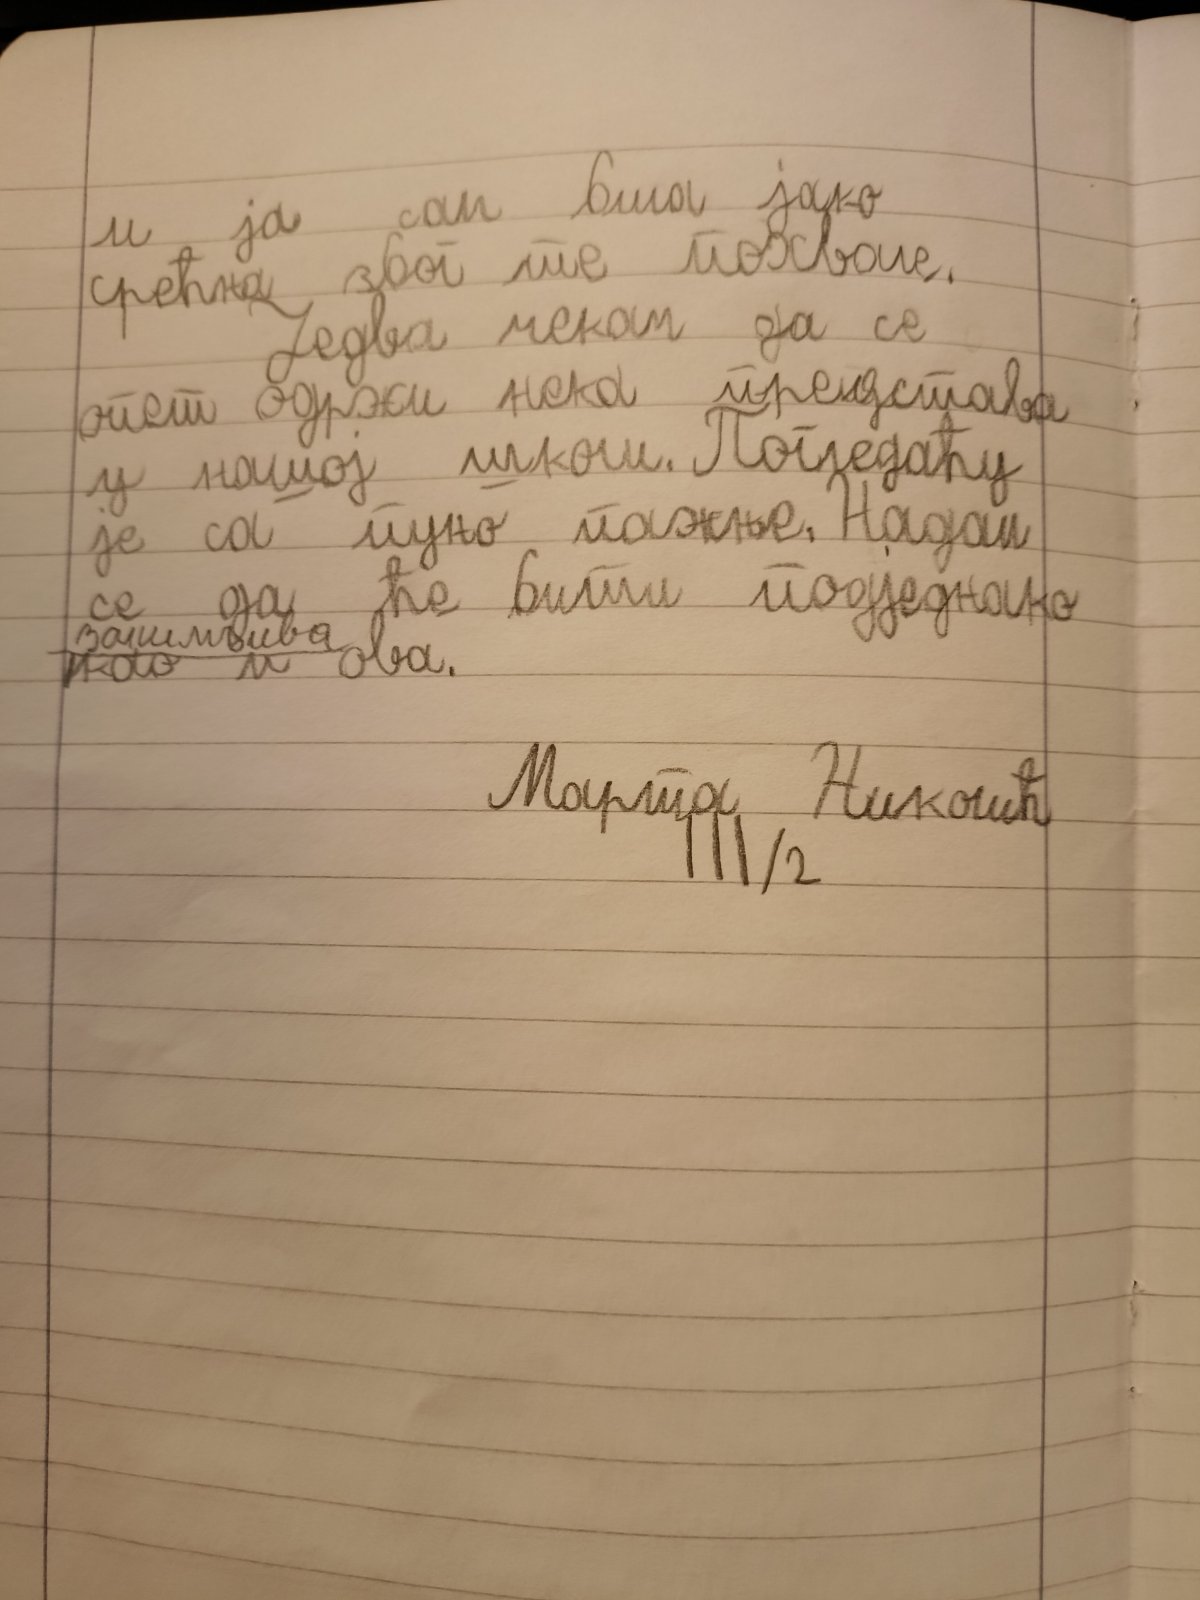 и ја сам била јако
срећна због те похвале.
Једва чекам да се
опет одржи нека предстaва
у нашој школи. Погледаћу
је са пуно пажње. Надам
се да ће бити подједнако
занимљива
као и ова.
Марта Николић
III/2